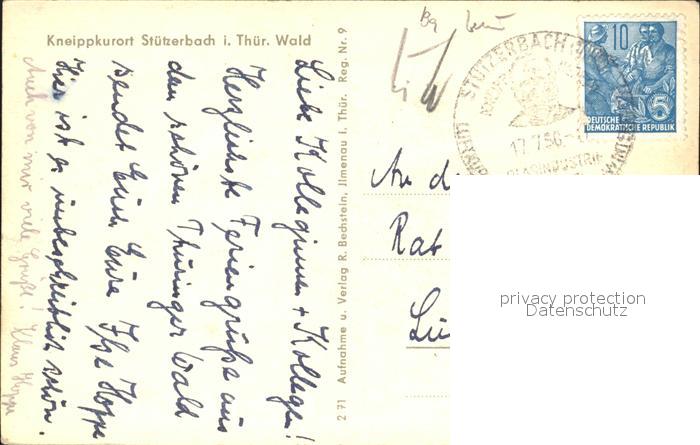 Kneippkurort Stützerbach i. Thür. Wald
Liebe Kolleginnen + Kollegen!
Herzlichste Feriengrüße aus
dem schönen Thüringer Wald
sendet Euch Eure Ilse Hoppe
Hier ist es unbeschreiblich schön.
Auch von mir viele Grüße! Klaus Hoppe
2 71 Aufnahme u. Verlag R. Bechstein, Jlmenau i. Thür. Reg. Nr. 9
STÜTZERBACH
17.7.56
GLASINDUSTRIE
10
5
DEUTSCHE
DEMOKRATISCHE REPUBLIK
An d
Rat
Lü
privacy protection
Datenschutz